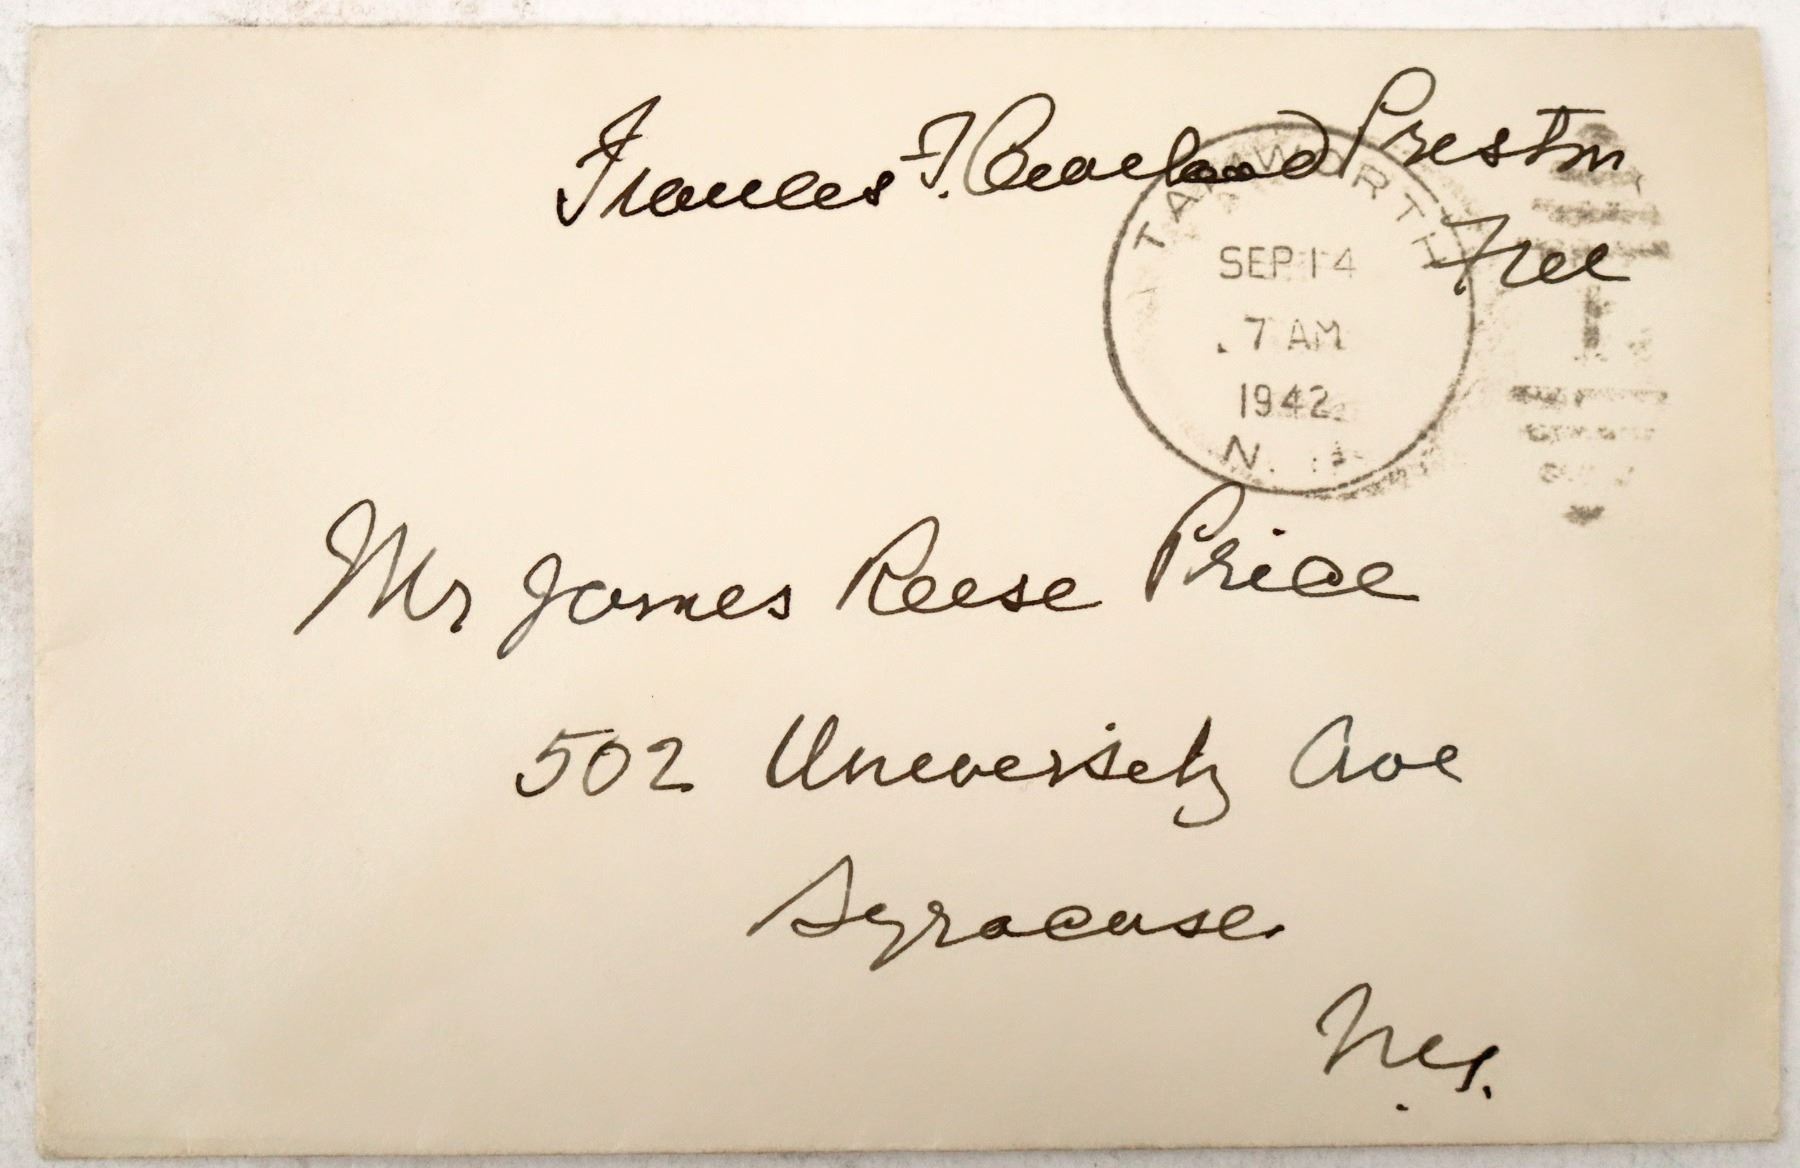 Frances F. Cleveland Preston
Free
TAMWORTH
SEP 14
7 AM
1942
N. H.
Mr James Reese Price
502 University Ave
Syracuse.
N.Y.